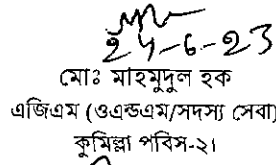 24-6-23
মোঃ মাহমুদুল হক
এজিএম (ওএন্ডএম/সদস্য সেবা)
কুমিল্লা পবিস-২।